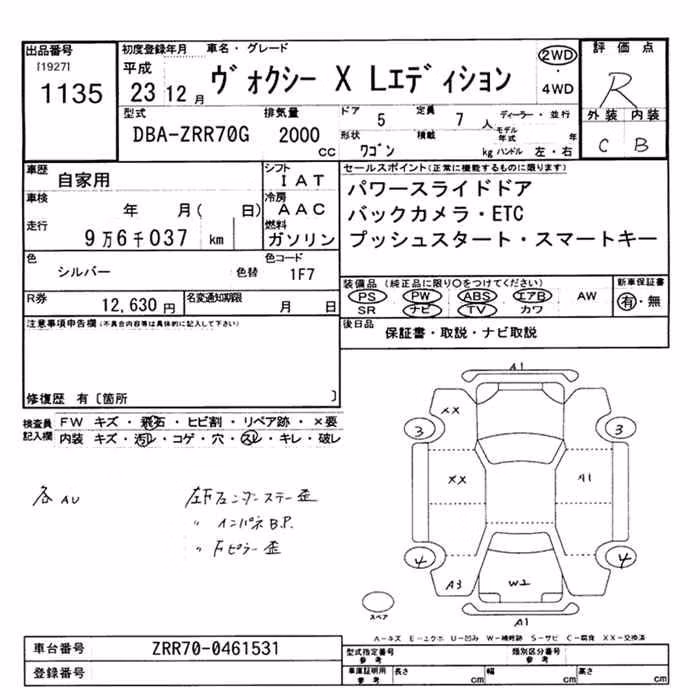 出品番号 初度登録年月 車名・グレード 2WD 評価点
[1927] 平成 ヴォクシー X Lエディション ・ R
1135 23 12月 4WD
型式 排気量 ドア 5 定員 7人 ディーラー・並行 外装 内装
DBA-ZRR70G 2000cc 形状 ワゴン 積載 kg モデル年式 年 ハンドル 左・右 C B
車歴 自家用 シフト IAT セールスポイント(正常に機能するものに限ります)
車検 年 月( 日) 冷房 AAC パワースライドドア
走行 9万6千037 km 燃料 ガソリン バックカメラ・ETC
プッシュスタート・スマートキー
色 シルバー 色替 色コード 1F7
装備品(純正品に限り○をつけてください) 新車保証書
PS PW ABS エアB AW 有・無
SR ナビ TV カワ
R券 12,630円 名変通知期限 月 日
注意事項申告欄(不具合内容等は具体的に記入して下さい)
後日品 保証書・取説・ナビ取説
修復歴 有〔箇所 〕
検査員 FW キズ・飛石・ヒビ割・リペア跡・×要
記入欄 内装 キズ・汚れ・コゲ・穴・スレ・キレ・破レ
各AU 左Fフェンダーステー歪
〃 インパネB.P.
〃 Fピラー歪
A1
XX
3 3
XX A1
4 4
A3 W2
スペア
A1
A-キズ E-エクボ U-凹み W-補修跡 S-サビ C-腐食 XX-交換済
車台番号 ZRR70-0461531 型式指定番号 参考 類別区分番号 参考
登録番号 車庫証明用 参考 長さ cm 幅 cm 高さ cm